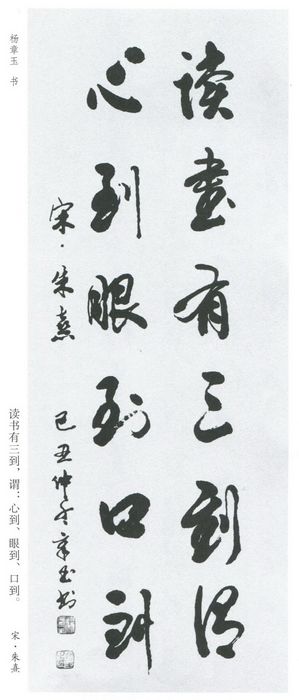 读书有三到谓
心到眼到口到
宋·朱熹
己丑仲冬章玉书
杨章玉 书
读书有三到，谓：心到、眼到、口到。
宋·朱熹